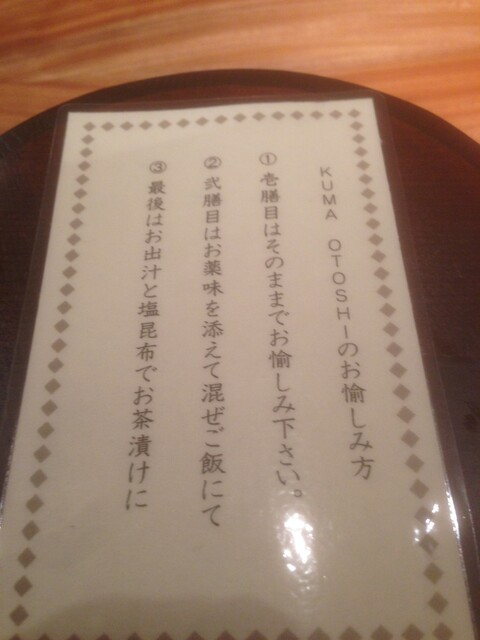 KUMA OTOSHIのお愉しみ方
① 壱膳目はそのままでお愉しみ下さい。
② 弐膳目はお薬味を添えて混ぜご飯にて
③ 最後はお出汁と塩昆布でお茶漬けに